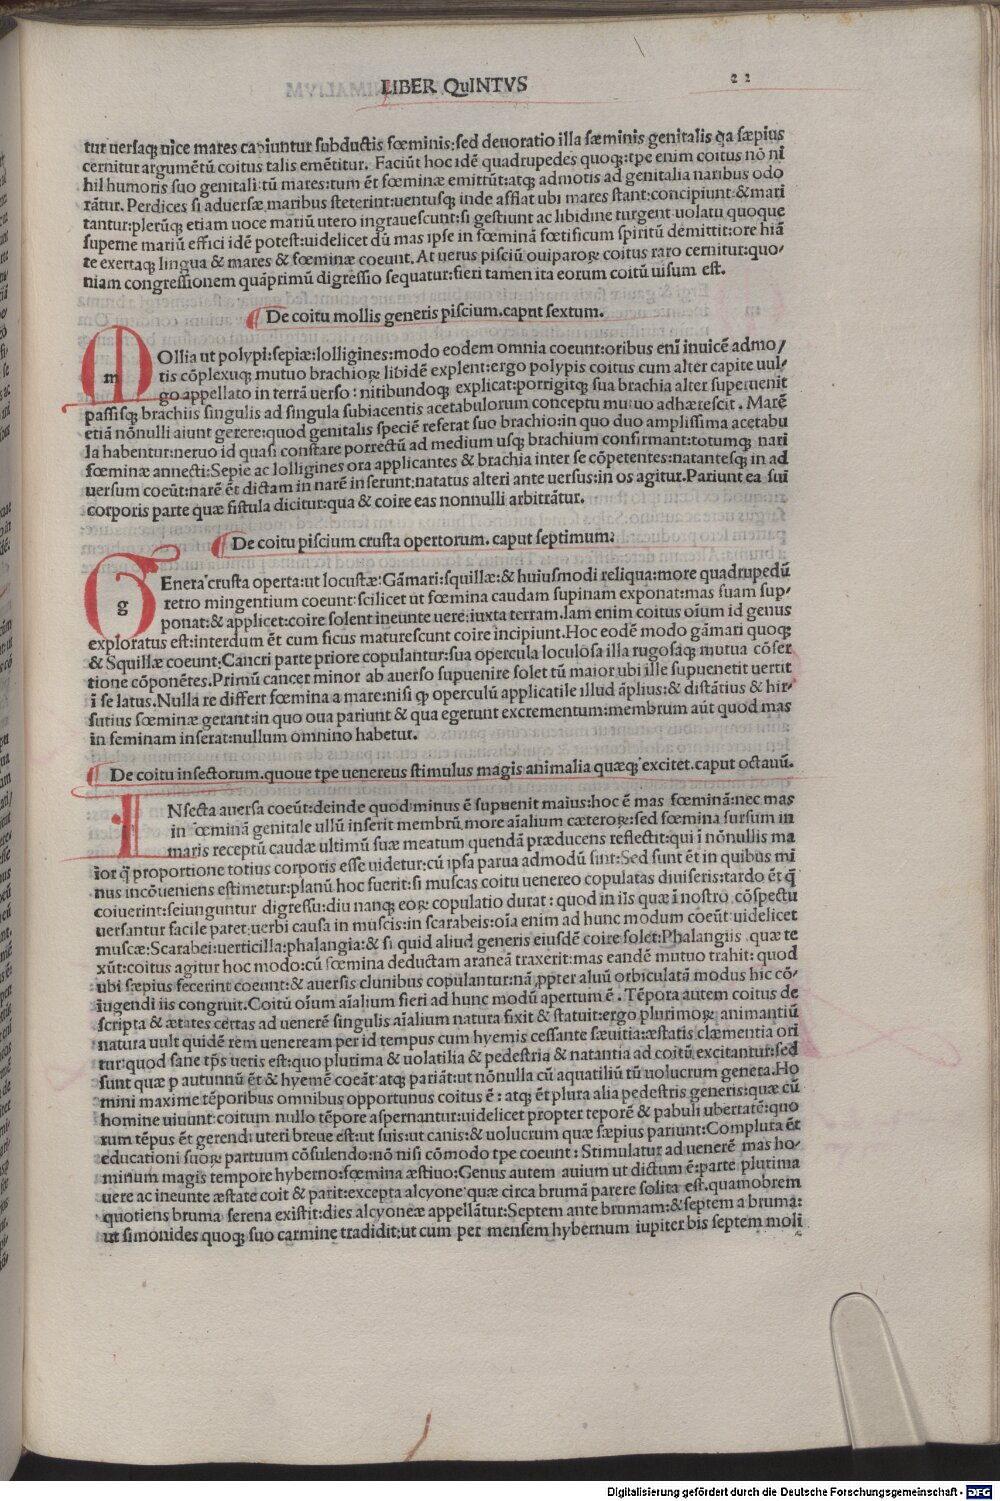 LIBER QuINTVS
22
tur uersaq; uice mares capiuntur subductis fœminis: sed deuoratio illa sæminis genitalis qa sæpius
cernitur argumētū coitus talis emētitur. Faciūt hoc idē quadrupedes quoq;: tpe enim coitus nō ni
hil humoris suo genitali: tū mares: tum ēt fœminæ emittūt: atq; admotis ad genitalia naribus odo
rātur. Perdices si aduersæ maribus steterint: uentusq; inde afflat ubi mares stant: concipiunt: & mari
tantur: plerūq; etiam uoce mariū utero ingrauescunt: si gestiunt ac libidine turgent uolatu quoque
superne mariū effici idē potest: uidelicet dū mas ipse in fœminā fœtificum spiritū demittit: ore hiā
te exertaq; lingua & mares & fœminæ coeunt. At uerus pisciū ouiparoꝝ coitus raro cernitur: quo/
niam congressionem quāprimū digressio sequatur: fieri tamen ita eorum coitū uisum est.
De coitu mollis generis piscium. caput sextum.
m
OLlia ut polypi: sepiæ: lolligines: modo eodem omnia coeunt: oribus eni inuicē admo/
tis cōplexuq; mutuo brachioꝝ libidē explent: ergo polypis coitus cum alter capite uul/
go appellato in terrā uerso: nitibundoq; explicat: porrigitq; sua brachia alter superuenit
passisq; brachiis singulis ad singula subiacentis acetabulorum conceptu mutuo adhærescit. Marē
etiā nōnulli aiunt gerere: quod genitalis speciē referat suo brachio: in quo duo amplissima acetabu
la habentur: neruo id quasi constare porrectū ad medium usq; brachium confirmant: totumq; nari
fœminæ annecti: Sepie ac lolligines ora applicantes & brachia inter se cōpetentes: natantesq; in ad
uersum coeūt: narē ēt dictam in narē inserunt: natatus alteri ante uersus: in os agitur. Pariunt ea sui
corporis parte quæ fistula dicitur: qua & coire eas nonnulli arbitrātur.
De coitu piscium crusta opertorum. caput septimum:
g
Enera crusta operta: ut locustæ: Gāmari: squillæ: & huiusmodi reliqua: more quadrupedū
retro mingentium coeunt: scilicet ut fœmina caudam supinam exponat: mas suam sup/
ponat: & applicet: coire solent ineunte uere: iuxta terram. Iam enim coitus oīum id genus
exploratus est: interdum ēt cum ficus maturescunt coire incipiunt. Hoc eodē modo gāmari quoq;
& Squillæ coeunt: Cancri parte priore copulantur: sua opercula loculosa illa rugosaq; mutua cōser
tione cōponētes. Primū cancer minor ab auerso supuenire solet tū maior ubi ille supuenetit uertit
ī se latus. Nulla re differt fœmina a mare: nisi ꝙ operculū applicatile illud āplius: & distātius & hir/
sutius fœminæ gerant: in quo oua pariunt & qua egerunt excrementum: membrum aūt quod mas
in feminam inserat: nullum omnino habetur.
De coitu insectorum. quoue tpe uenereus stimulus magis animalia quæq; excitet. caput octauū.
I
NSecta auersa coeūt: deinde quod minus ē supuenit maius: hoc ē mas fœminā: nec mas
in fœminā genitale ullū inserit membrū more aīalium cæteroꝝ: sed fœmina sursum in
maris receptū caudæ ultimū suæ meatum quendā præducens reflectit: qui ī nōnullis ma
ior q̄ proportione totius corporis esse uidetur: cū ipsa parua admodū sint: Sed sunt ēt in quibus mi
nus incōueniens estimetur: planū hoc fuerit: si muscas coitu uenereo copulatas diuiseris: tardo ēt q̄
coiuerint: seiunguntur digressu: diu nanq; eoꝝ copulatio durat: quod in iis quæ ī nostro cōspectu
uersantur facile patet: uerbi causa in muscis: in scarabeis: oīa enim ad hunc modum coeūt uidelicet
muscæ: Scarabei: uerticilla: phalangia: & si quid aliud generis eiusdē coire solet: Phalangiis quæ te
xūt: coitus agitur hoc modo: cū fœmina deductam araneā traxerit: mas eandē mutuo trahit: quod
ubi sæpius fecerint coeunt: & auersis clunibus copulantur: nā ꝓpter aluū orbiculatā modus hic cō/
iugendi iis congruit. Coitū oīum aīalium fieri ad hunc modū apertum ē. Tēpora autem coitus de
scripta & ætates certas ad uenerē singulis aīalium natura fixit & statuit: ergo plurimoꝝ animantiū
natura uult quidē rem ueneream per id tempus cum hyemis cessante sæuitia: æstatis clæmentia ori
tur: quod sane tp̄s ueris est: quo plurima & uolatilia & pedestria & natantia ad coitū excitantur: sed
sunt quæ p autunnū ēt & hyemē coeāt: atq; pariāt: ut nōnulla cū aquatiliū tū uolucrum genera. Ho
mini maxime tēporibus omnibus opportunus coitus ē: atq; ēt plura alia pedestris generis: quæ cū
homine uiuunt: coitum nullo tēpore aspernantur: uidelicet propter teporē & pabuli ubertatē: quo
rum tēpus ēt gerendi uteri breue est: ut suis: ut canis: & uolucrum quæ sæpius pariunt: Complura ēt
educationi suoꝝ partuum cōsulendo: nō nisi cōmodo tpe coeunt: Stimulatur ad uenerē mas ho/
minum magis tempore hyberno: fœmina æstiuo: Genus autem auium ut dictum ē: parte plurima
uere ac ineunte æstate coit & parit: excepta alcyone quæ circa brumā parere solita est. quamobrem
quotiens bruma serena existit: dies alcyoneæ appellātur: Septem ante brumam: & septem a bruma:
ut simonides quoq; suo carmine tradidit: ut cum per mensem hybernum iupiter bis septem moli
Digitalisierung gefördert durch die Deutsche Forschungsgemeinschaft - DFG